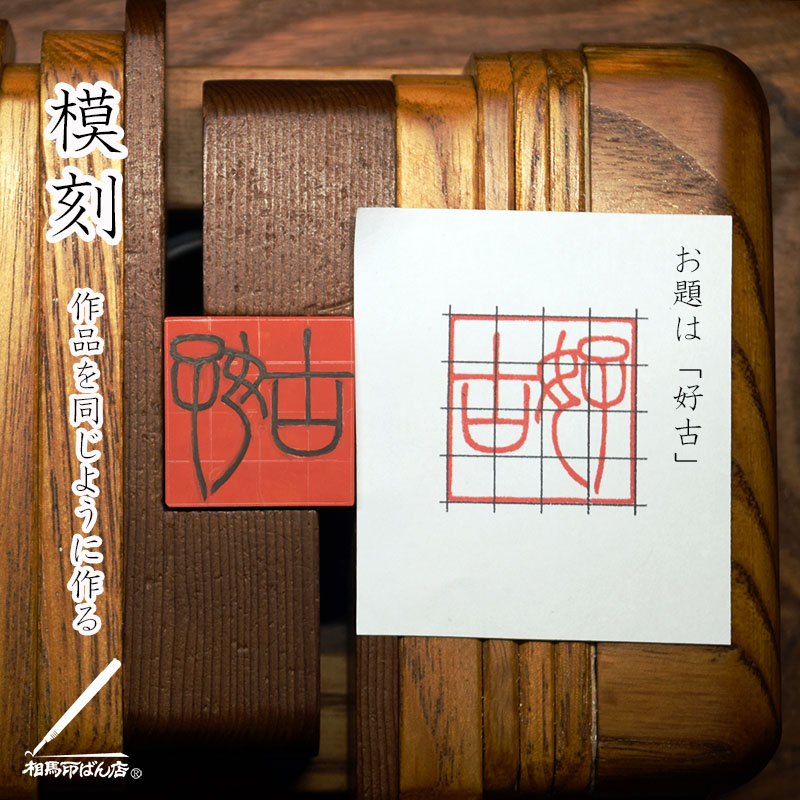 模刻
作品を同じように作る
お題は「好古」
好古
好古
相馬印ばん店®